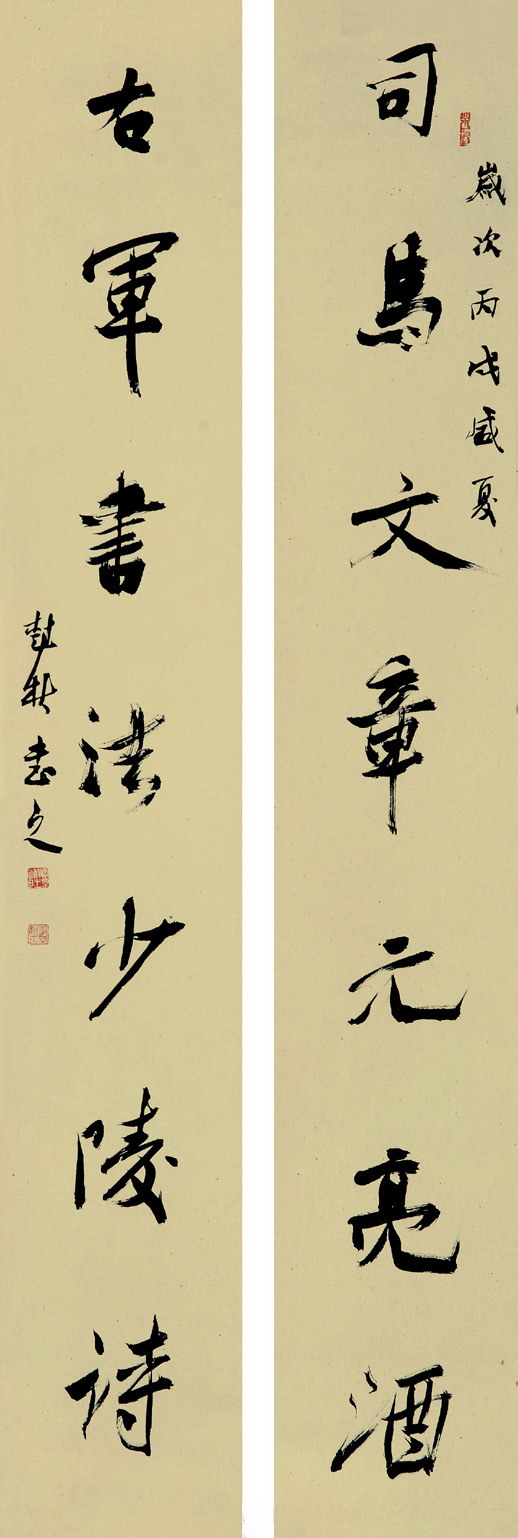 歲次丙戌盛夏
司馬文章元亮酒
右軍書法少陵詩
書之